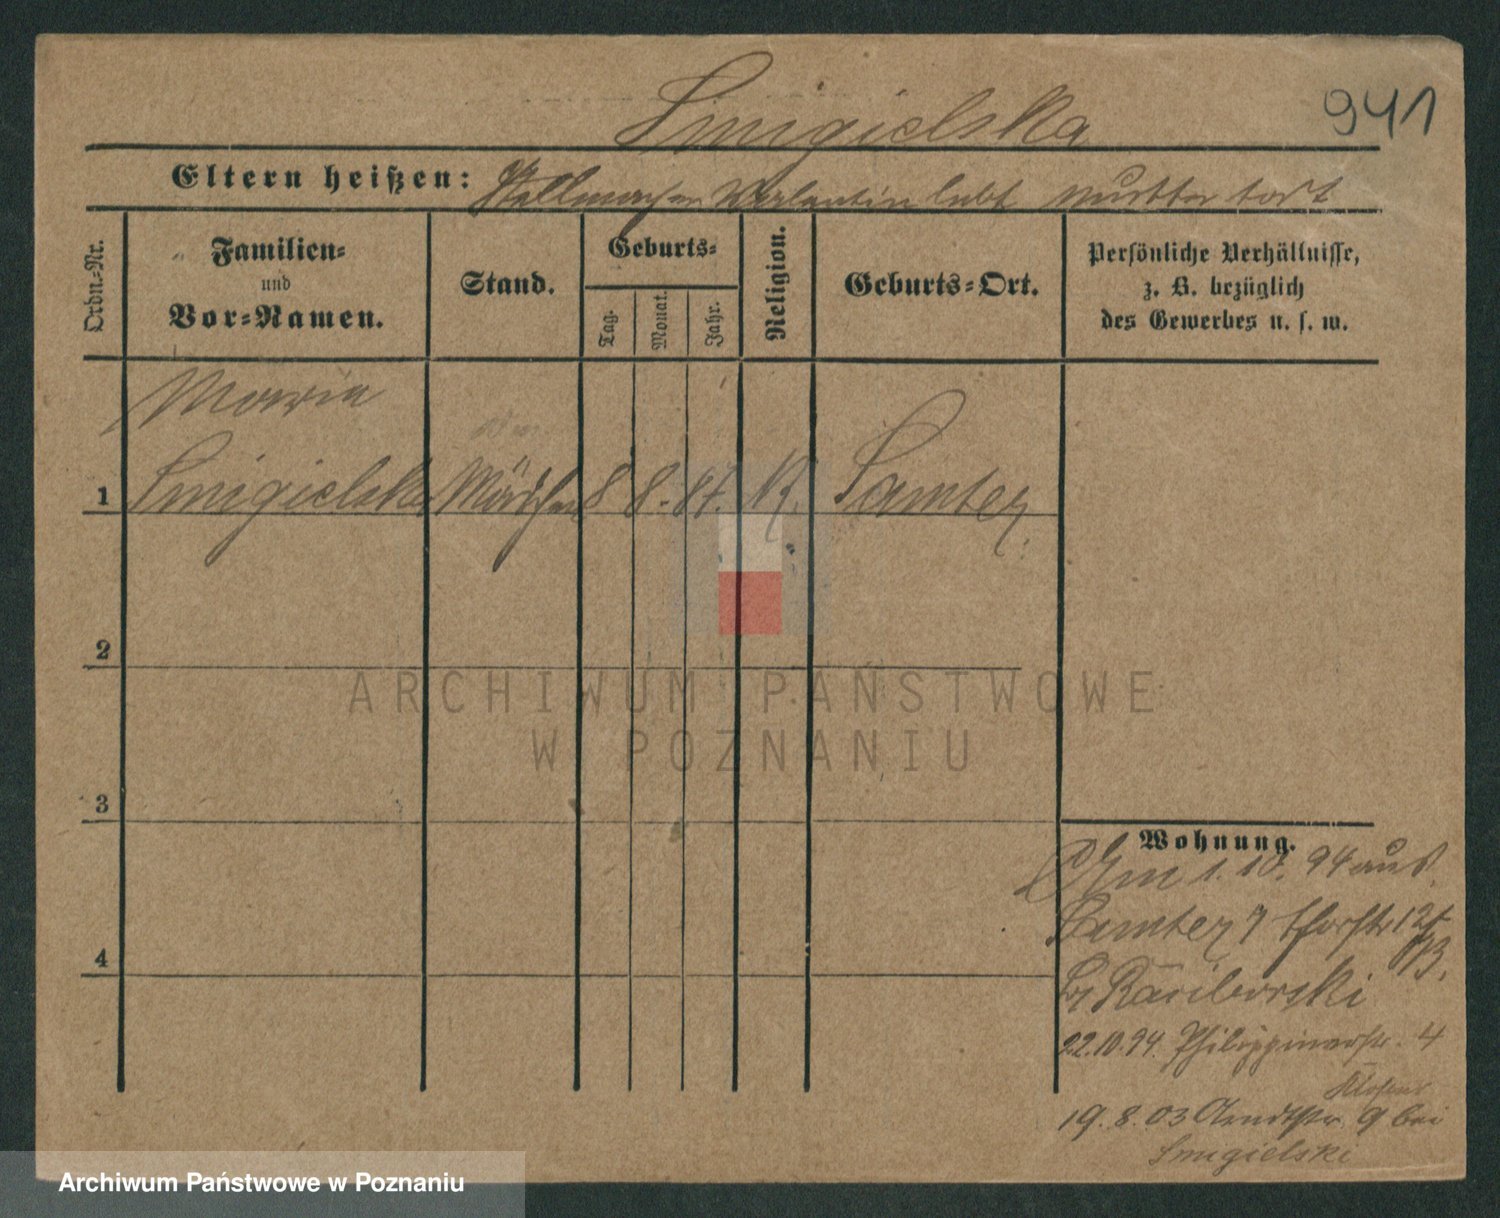 Smigielska
941
Eltern heißen: Stellmacher Valentin lebt Mutter tot
Ordn.-Nr.
Familien-
und
Vor-Namen.
Stand.
Geburts-
Tag.
Monat.
Jahr.
Religion.
Geburts-Ort.
Persönliche Verhältnisse,
z. B. bezüglich
des Gewerbes u. s. w.
Maria
1 Smigielska Mädchen 8 8. 87. K. Samter
2
3
4
Wohnung.
Am 1. 10. 94 aus
Samter, Thorstr 12
b/ Raciborski
22.10.94. Philippinerstr. 4
19. 8. 03 Arndtstr. 9 bei
Smigielski
ARCHIWUM PAŃSTWOWE
W POZNANIU
Archiwum Państwowe w Poznaniu